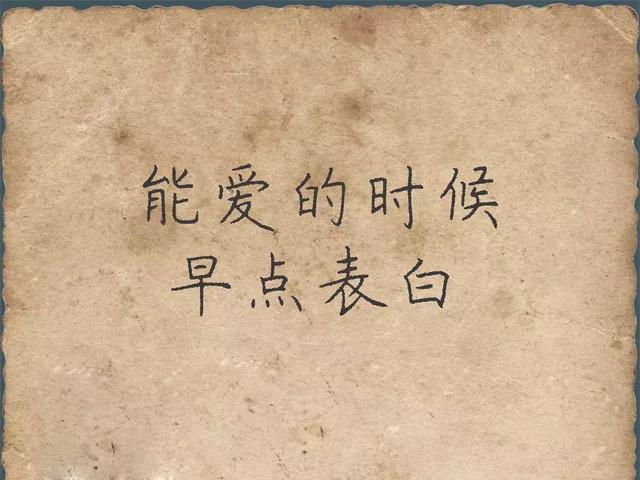 能爱的时候
早点表白